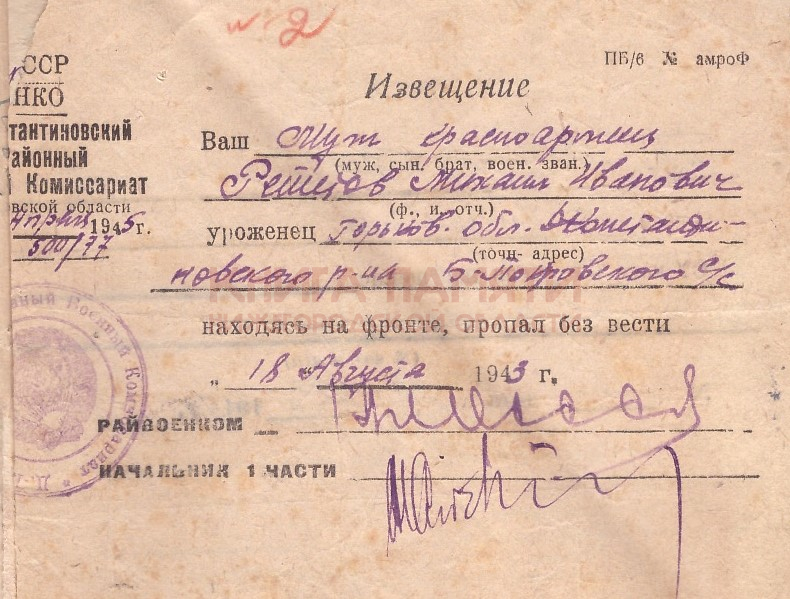 № 2
ПБ/6 № амроФ
СССР
НКО
Извещение
тантиновский
районный
Комиссариат
вской области
Апрель 1945 г.
500/77
Ваш Муж красноармеец
(муж, сын, брат, воен. зван.)
Михаил Иванович
(ф., и., отч.)
уроженец Горьков. обл. Константи-
(точн- адрес)
новского р-на Б. Покровского с/с
КНИГА ПАМЯТИ
НИЖЕГОРОДСКОЙ ОБЛАСТИ
находясь на фронте, пропал без вести
„ 18 " Августа 1943 г.
РАЙВОЕНКОМ
НАЧАЛЬНИК 1 ЧАСТИ
ный Военный Комиссариат